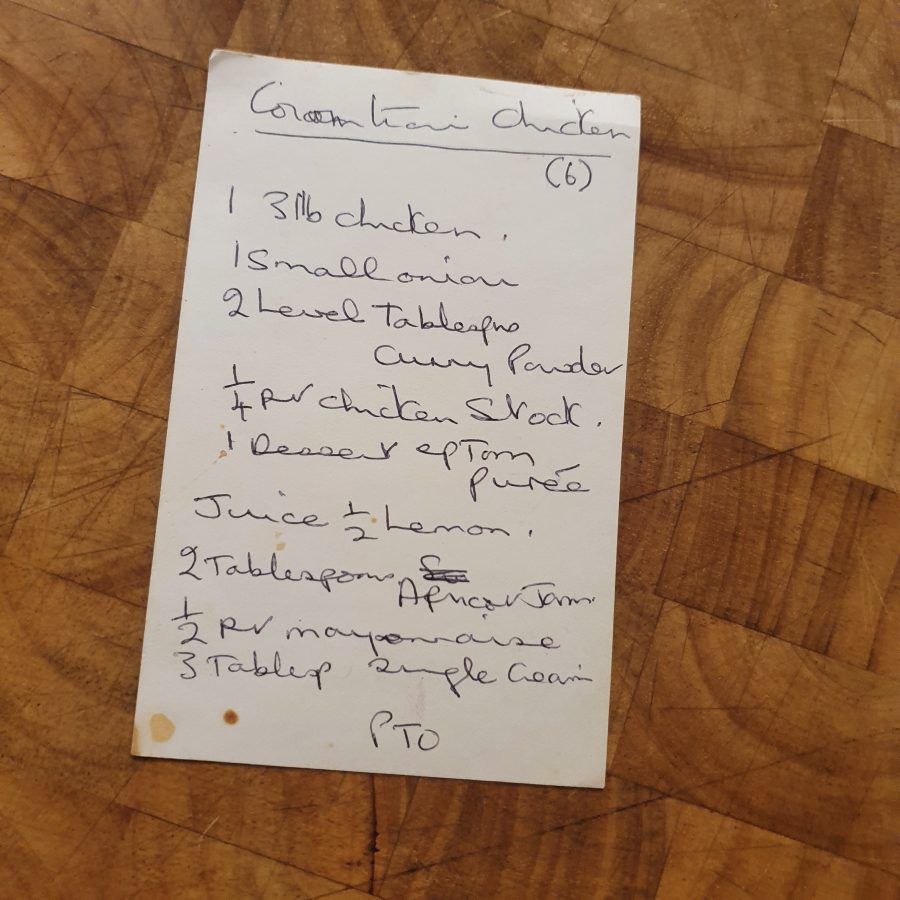 Coronation Chicken
(6)
1 3lb chicken.
1 Small onion
2 Level Tablespns
Curry Powder
1/4 pt chicken Stock.
1 Dessert sp Tom
Purée
Juice 1/2 Lemon.
2 Tablespoons
Apricot Jam.
1/2 pt mayonnaise
3 Tablesp Single Cream
PTO